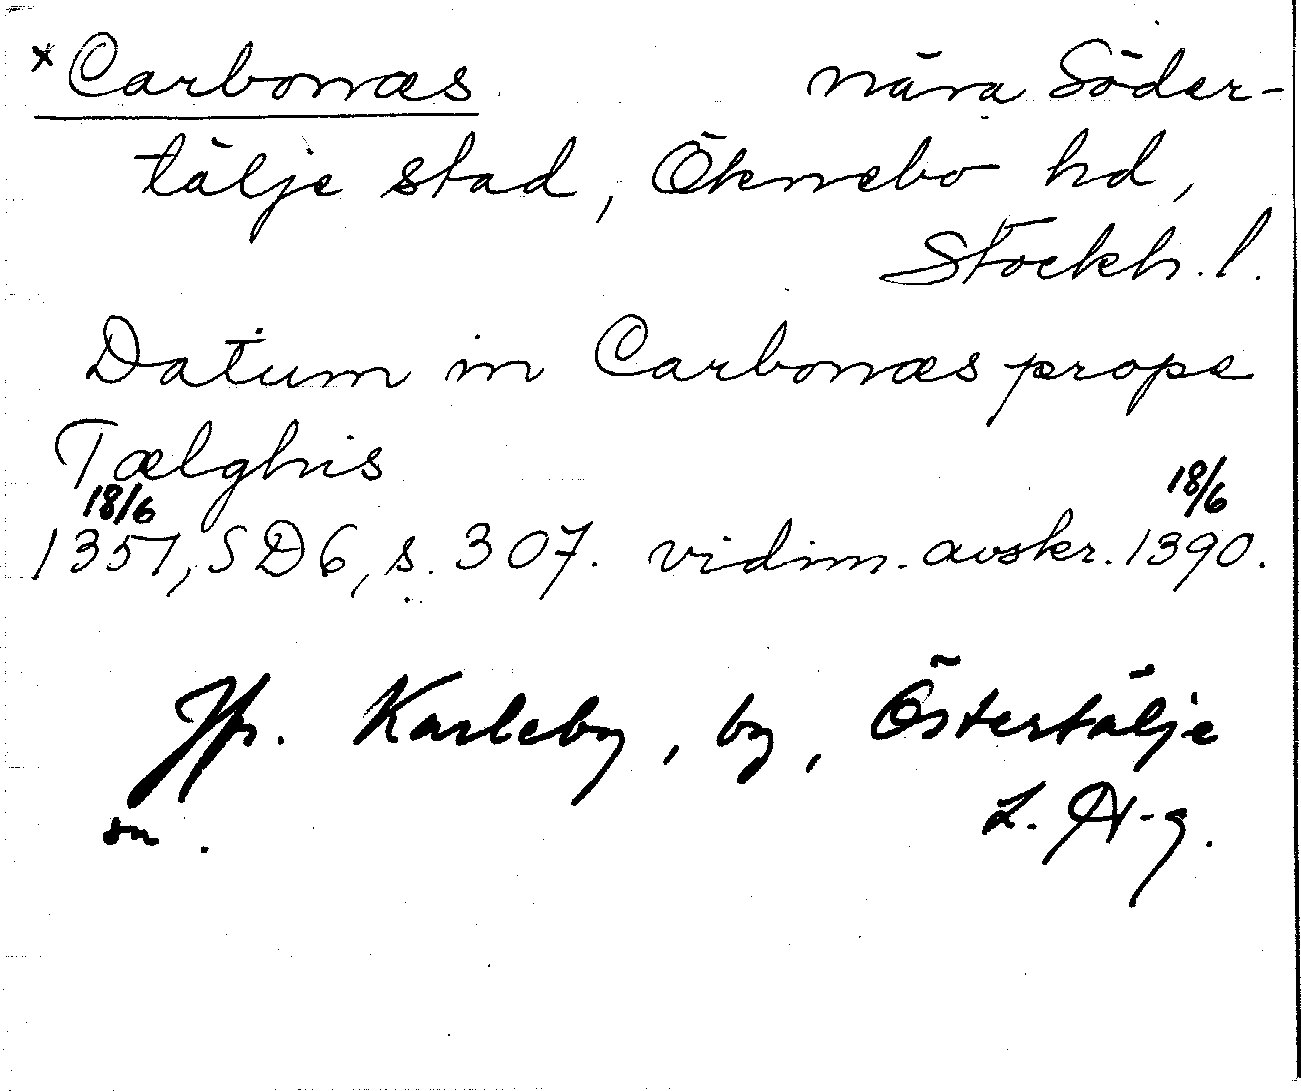 *Carbonæs nära Söder-
tälje stad, Öknebo hd,
Stockh. l.
Datum in Carbonæs prope
Tælghis
18/6 18/6
1357, SD 6, s. 307. vidim. avskr. 1390.
Jfr. Karleby, by, Östertälje
sn. L. H-g.